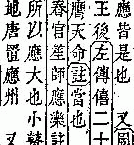 應皆是也 又國
王後左傳僖二十
應天命註當也
春官笙師應樂註
所以應大也小
地唐置應州 又